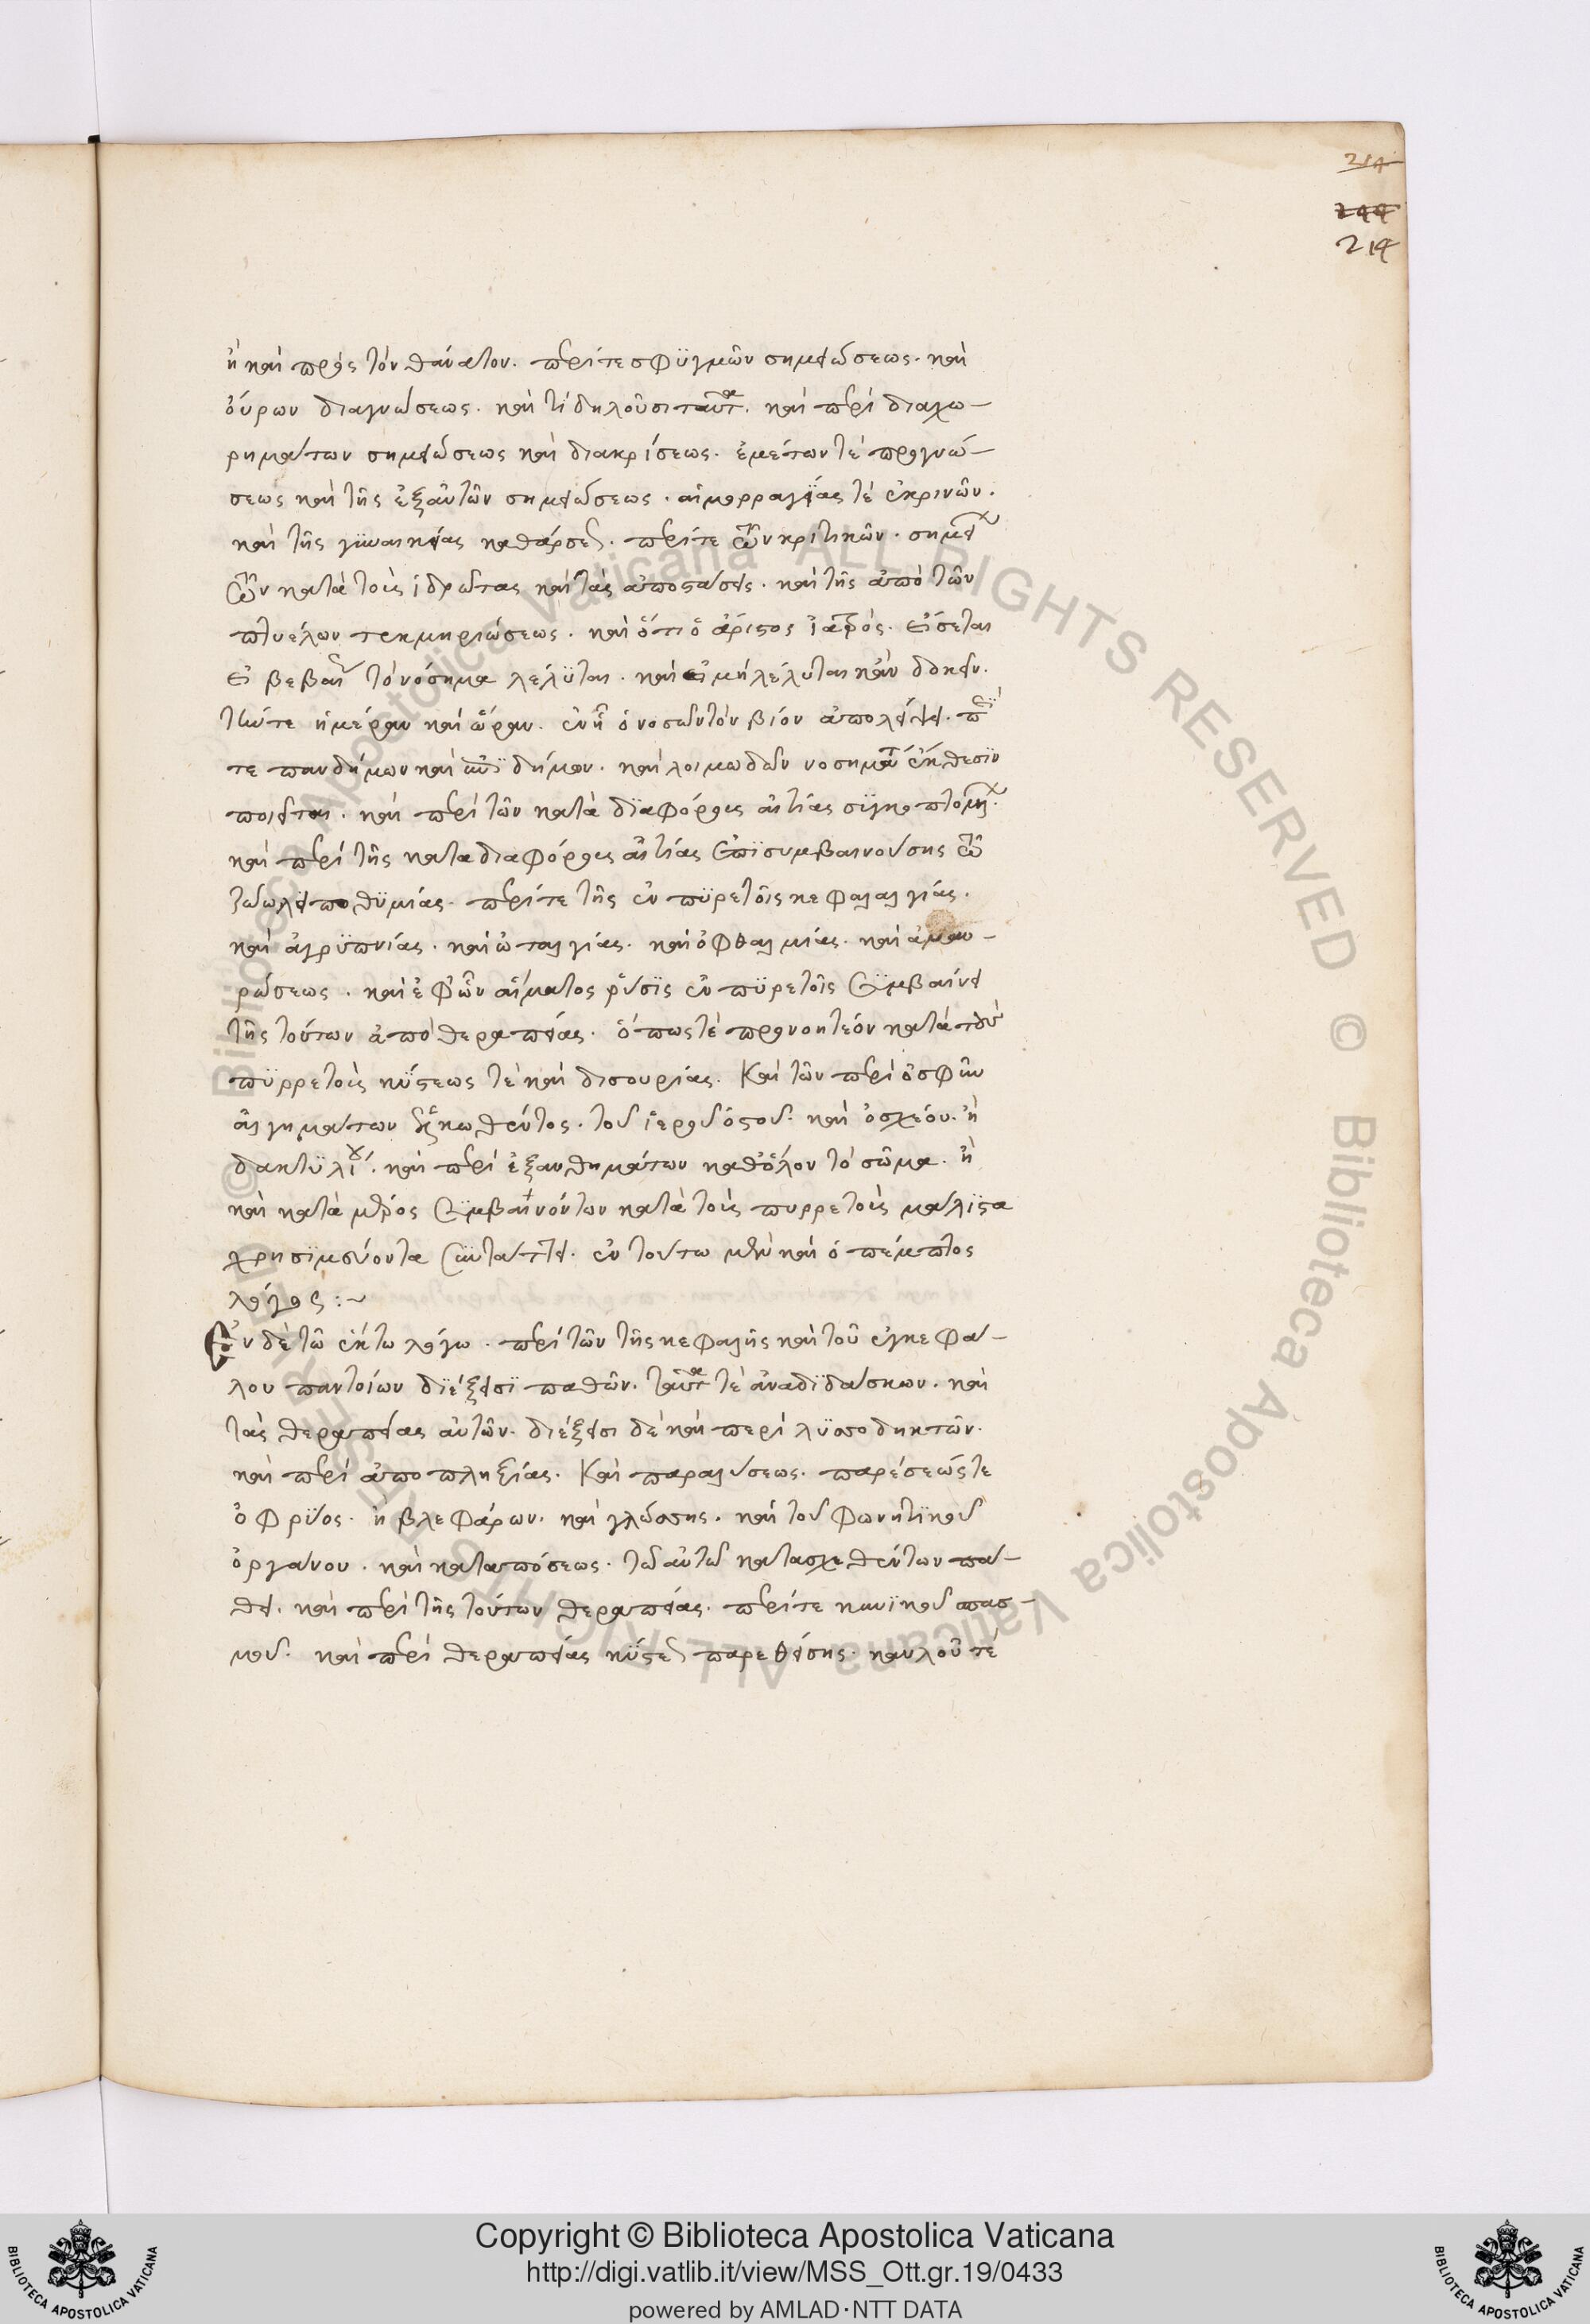 214
244
214
ἢ καὶ πρὸς τὸν θάνατον. περί τε σφϋγμῶν σημειώσεως. καὶ
οὔρων διαγνώσεως. καὶ τί δηλοῦσι ταῦτα. καὶ περὶ διαχω-
ρημάτων σημειώσεως καὶ διακρίσεως. ἐμέτων τὲ προγνώ-
σεως καὶ τῆς ἐξ αὐτῶν σημειώσεως. αἱμορραγΐας τὲ ἐκ ρινῶν.
καὶ τῆς γϋναικείας καθάρσεως. περί τε τῶν κριτικῶν. σημείων
τῶν κατὰ τοὺς ἱδρῶτας καὶ τὰς ἀποστάσεις. καὶ τῆς ἀπὸ τῶν
πτυέλων τεκμηριώσεως. καὶ ὅτι ὁ ἄριστος ἰατρὸς. εἴσεται
εἰ βεβαίως τὸ νόσημα λέλϋται. καὶ εἰ μὴ λέλυται κἂν δοκεῖν.
τήν τε ἡμέραν καὶ ὥραν. ἐν ᾗ ὁ νοσῶν τὸν βίον ἀπολείψει. περί
τε πανδήμων καὶ ἐπϊδήμων. καὶ λοιμωδῶν νοσημάτων ἔκθεσϊν
ποιεῖται. καὶ περὶ τῶν κατὰ δϊαφόρους αἰτίας σϋγκοπτομένων.
καὶ περὶ τῆς κατα διαφόρους αἰτίας ἐπϊσυμβαινούσης τῶν
τῶω λειποθϋμίας. περί τε τῆς ἐν πϋρετοῖς κεφαλαλγίας.
καὶ ἀγρϋπνίας. καὶ ὠταλγίας. καὶ ὀφθαλμίας. καὶ ἀμαυ-
ρώσεως. καὶ ἐφ' ὧν αἵματος ῥύσϊς ἐν πϋρετοῖς σϋμβαίνει
τῆς τούτων ἀπὸ θεραπείας. ὅπως τὲ προνοητέον κατὰ τοὺς
πϋρρετοὺς κϋστεως τὲ καὶ δισουρίας. Καὶ τῶν περὶ ὀσφῦν
ἀλγημάτων ἑλκωθέντος. τοῦ ἱεροῦ ὀστοῦ. καὶ ὀσχέου. ἢ
δακτϋλίου. καὶ περὶ ἐξανθημάτων καθ' ὅλον τὸ σῶμα. ἢ
καὶ κατὰ μέρος σϋμβαινόντων κατὰ τοὺς πυρρετοὺς μάλϊστα
χρησϊμεύοντα σϋντάττει. ἐν τούτω μὲν καὶ ὁ πέμπτος
λόγος :~
Ἐν δὲ τῶ ἕκτω λόγω. περὶ τῶν τῆς κεφαλῆς καὶ τοῦ ἐγκεφά-
λου παντοίων δϊέξεισϊ παθῶν. ταῦτα τὲ ἀναδϊδάσκων. καὶ
τὰς θεραπείας αὐτῶν. διέξεισι δὲ καὶ περὶ λϋσσοδηκτῶν.
καὶ περὶ ἀποπληξίας. Καὶ παραλύσεως. παρέσεώς τε
ὀφρύος. ἢ βλεφάρων. καὶ γλώσσης. καὶ τοῦ φωνητϊκοῦ
ὀργάνου. καὶ καταπόσεως. τῶ αὐτῶ κατασχεθέντων πά-
θει. καὶ περὶ τῆς τούτων θεραπείας. περί τε κυνϊκοῦ σπασ-
μοῦ. καὶ περὶ θεραπείας κϋστεως παρεθείσης. καυλοῦ τὲ
Copyright © Biblioteca Apostolica Vaticana
http://digi.vatlib.it/view/MSS_Ott.gr.19/0433
powered by AMLAD·NTT DATA